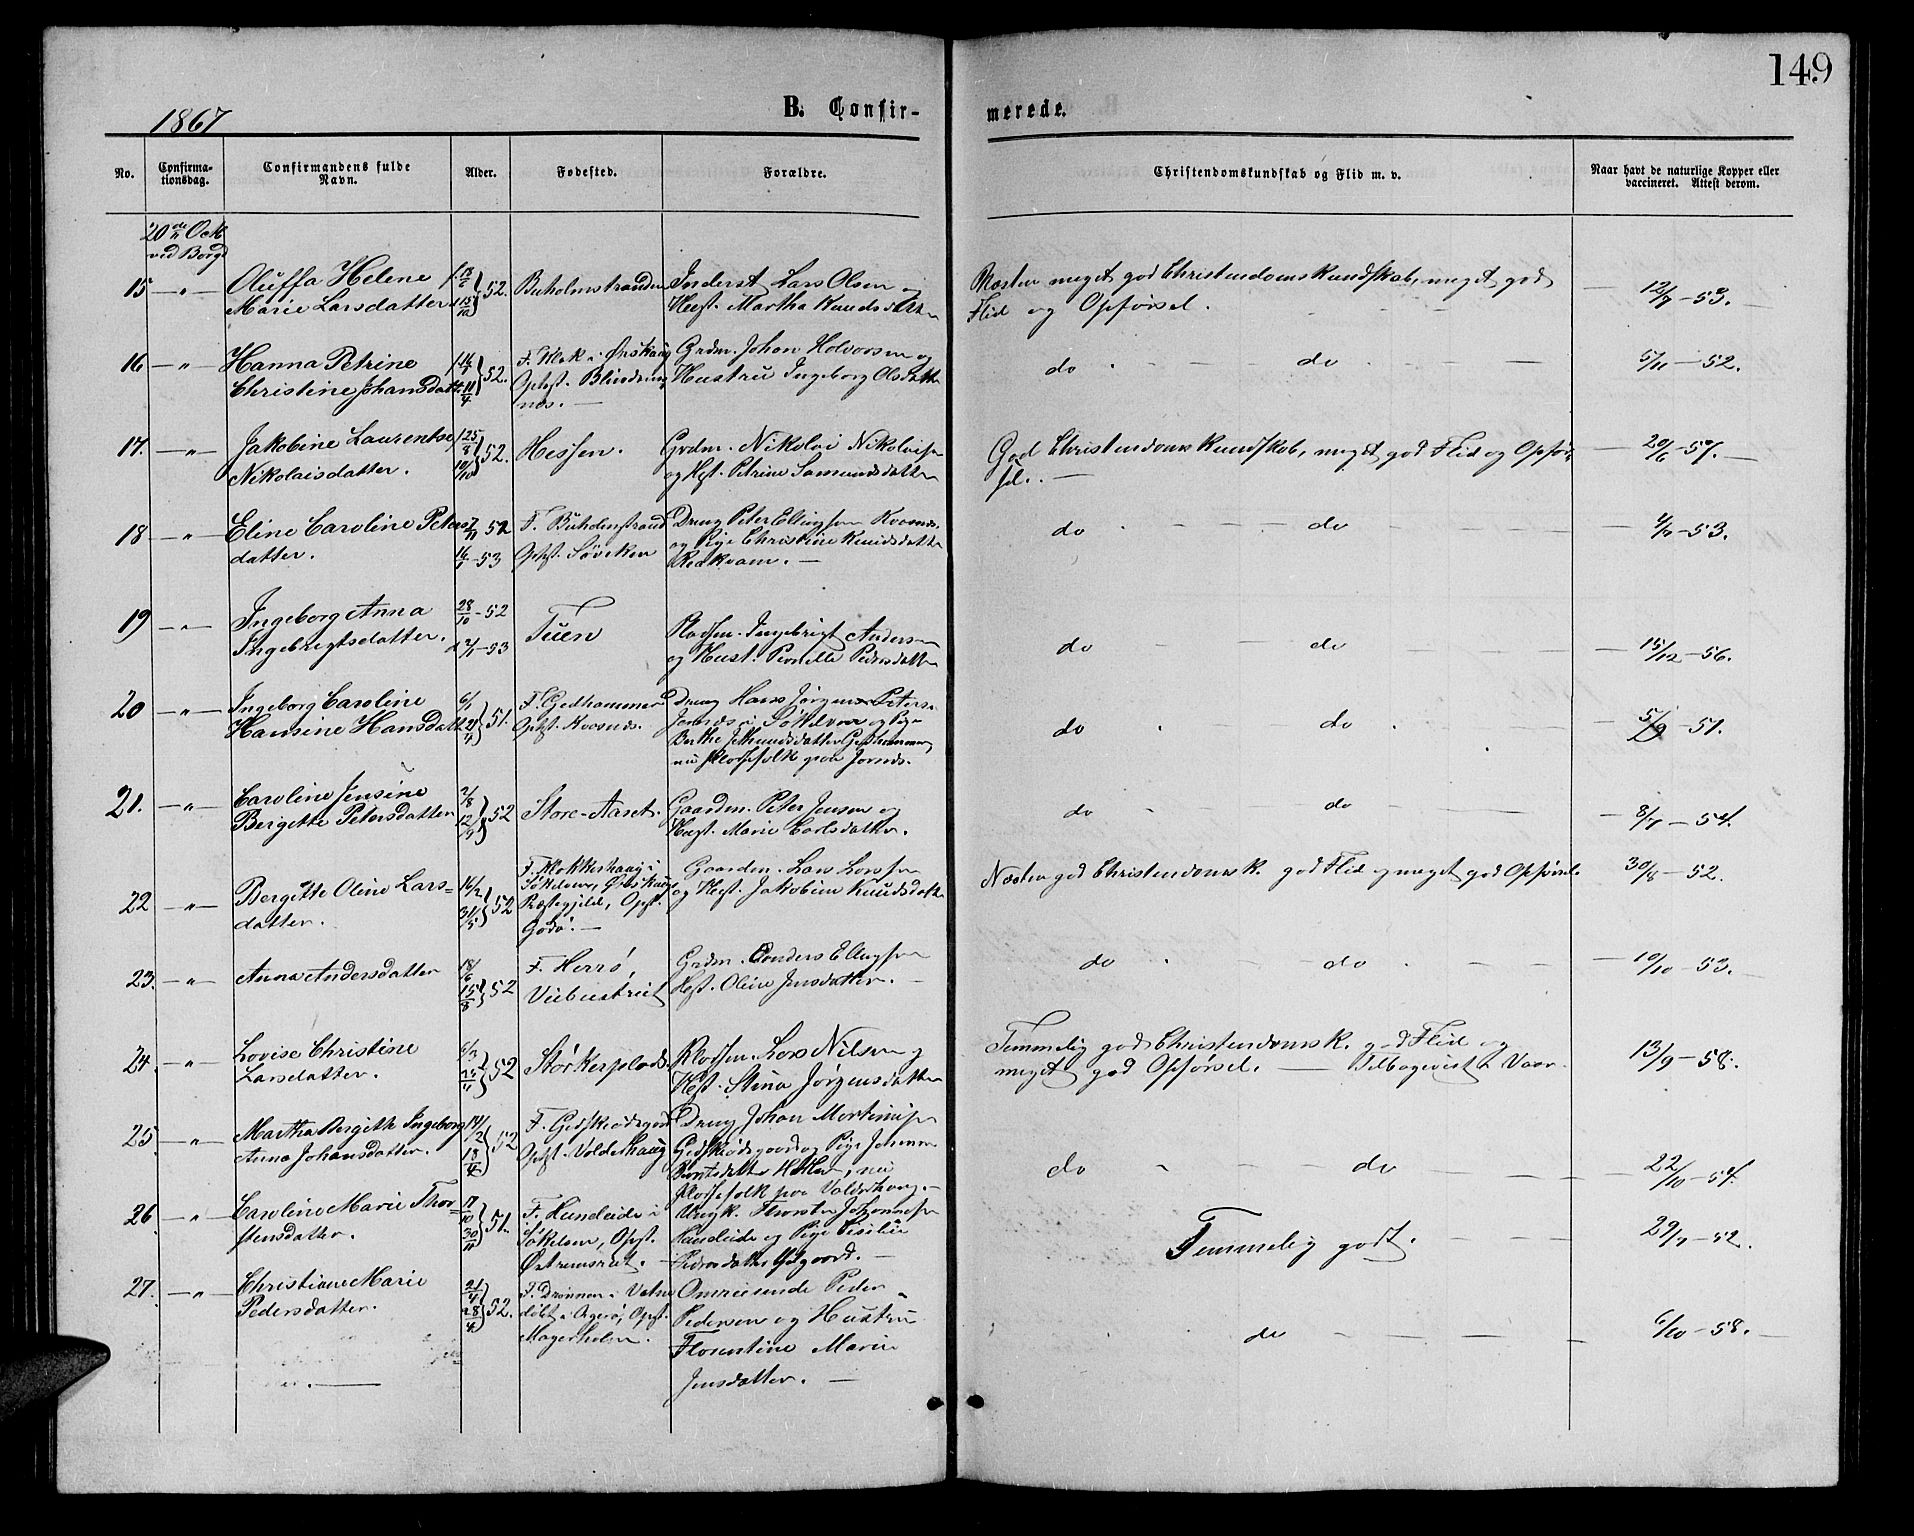 149
1867
B. Confir-
merede.
No.
Confirma-
tionsdag.
Confirmandens fulde
Navn.
Alder.
Fødested.
Forældre.
Christendomskundskab og Flid m. v.
Naar havt de naturlige Kopper eller
vaccineret. Attest derom.
20de Octb
ved Borgd
15 — " —
Oluffa Helene
Marie Larsdatter
52.
Buholmstranden
Inderst Lars Olsen og
Hust. Martha Knudsdatter
Næsten meget god Christendoms Kundskab, meget god
Flid og Opførsel.
12/7 - 53.
16 — " —
Hanna Petrine
Christine Johansdatt.
52.
F. Klok i Ørskoug
Opfst. Blindem
nes. —
Grdm. Johan Holvorsen og
Hustru Ingeborg Olsdatter
do - do
5/11 - 52.
17. — " —
Jakobine Laurentse
Nikolaisdatter.
52.
Hessen.
Grdm. Nikolai Nikolaisen
og Hst. Petrine Samundsdatter
God Christendoms Kundskab, meget god Flid og Opfør-
sel. —
20/6 - 57.
18 — " —
Eline Caroline Peters
datter.
52
16/1 - 53
F. Buholmstrand
Opfst. Søviken
Dreng Peter Ellingsen
og Pige Christine Knudsdatter
Rødkvam. —
do - do
- 53.
19 — " —
Ingeborg Anna
Ingebrigtsdatter.
28/10 - 52
2/1 - 53
Tuen
Pladsm. Ingebrigt Andersen
og Hust. Pernille Pedersdatter
do - do
15/12 - 56.
20 — " —
Ingeborg Caroline
Hansine Hansdatt.
6/1
51.
F. Gedhammer
Opfst.
Dreng Hans Jørgen Peters.
og Pige
Berthe Gedhammer
nu Pladsfolk paa
do - do
5/9 - 51.
21. — " —
Caroline Jensine
Bergitte Petersdatter
2/8
12/9
52
Store-Aaset.
Gaardm. Peter Jensen og
Hust. Marie Carlsdatter.
do - do
8/7 - 54.
22 — " —
Bergitte Oline Lars-
datter.
16/2
31/5
52
F. Klokkerhaug i
Søkelven, Ørskoug
Præstegjeld, Opfst.
Godø. —
Gaardm. Lars Larsen
og Hust. Jakobine Knudsdatter
Næsten god Christendomsk. god Flid og meget god Opførsel.
30/8 - 52.
23. — " —
Anna Andersdatter
18/6
15/8
52
F. Herrø,
Grdm. Anders Ellingsen
Hst. Oline Jensdatter. —
do - do
10/10 - 53.
24. — " —
Lovise Christine
Larsdatter.
6/3
52
Størkerplads.
Pladsm. Lars Nilsen og
Hst. Stina Jørgensdatter
Temmelig god Christendomsk. god Flid og
meget god Opførsel. — Tilbagevist i Vaar.
13/9 - 58.
25 — " —
Martha Bergitte Ingeborg
Anna Johansdatter.
14/2
18/4
52
F. Gjedskiødsgord
Opfst. Volderhaug
Dreng Johan Martinusen
Gjedskiødsgaard og Pige Johanne
Berntsdatter, nu
Pladsfolk paa Valderhaug. —
do - do
22/10 - 54.
26 — " —
Caroline Marie Thor-
stensdatter.
17/10
30/11
51.
F. Hundeide i
Søkelven, Opfst.
Østremsrut. —
Ungk. Thorsten Johannesen
Hundeide og Pige
Pedersdatter —
Temmelig godt.
29/7 - 52.
27. — " —
Christiane Marie
Pedersdatter.
21/4
28/4
52.
F. Drønnen i Vatne
Opfst.
Magerholm.
Omreisende Peder
Pedersen og Hustru
Florentine Marie
Jensdatter. —
do
6/10 - 58.